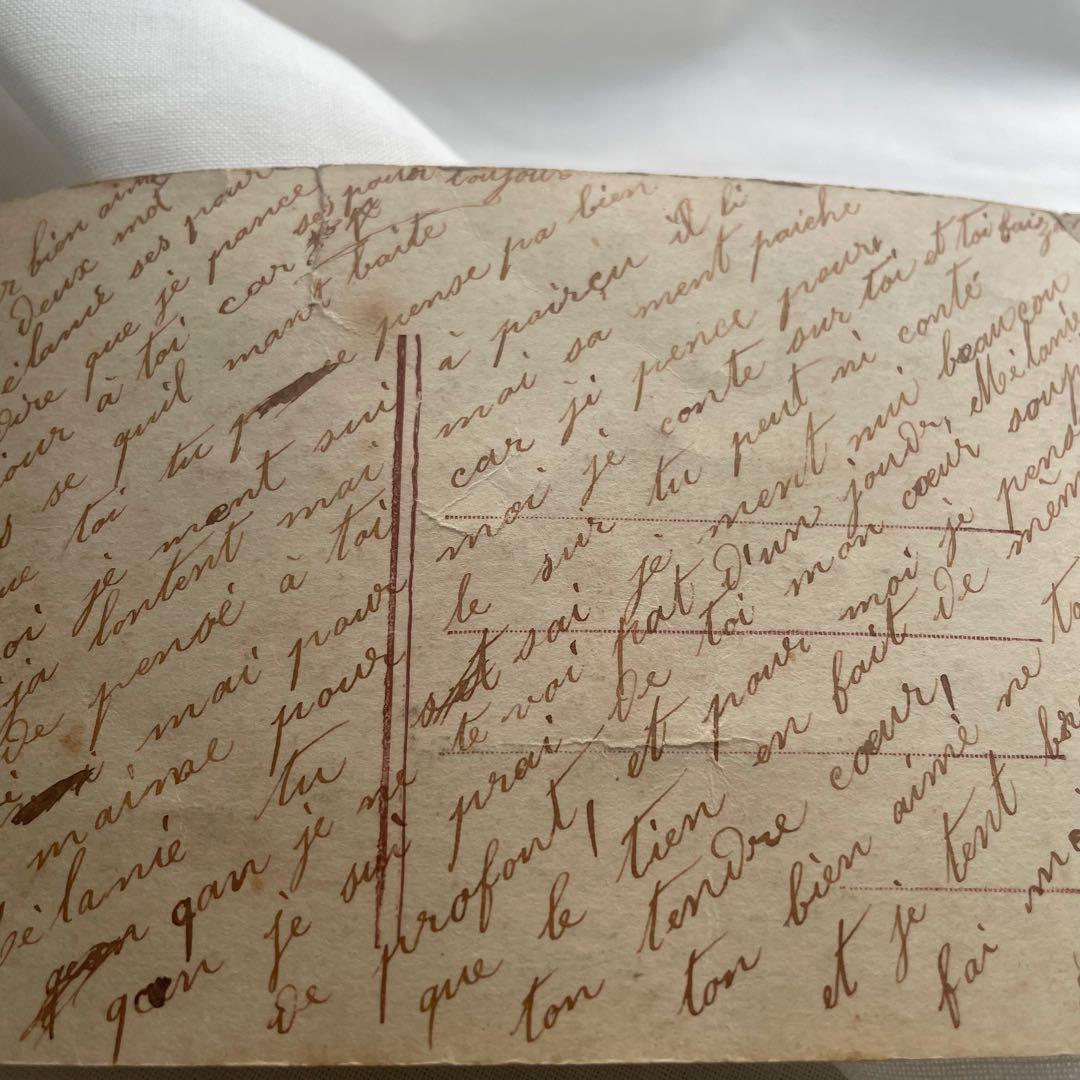 bien aimé
deux moi
élanie ses pour
dire que je pance ses pour toujour
jour à toi car
se quil mant baite
toi tu pense pa bien
je ment sui à pairçu il li
lontent mai mai sa ment paiche
de pensé à toi car ji pence pour
mai pour moi je conte sur toi et toi faiz
mainse pour le sur tu peut ni conté
élanie tu sai je ment nui beaucou
qan je ne te voi pat d'un jour, Mélanie
qan je sui prai de toi mon cœur soup
de profont! et pour moi je pens
que le tien en fait de mêm
ton tendre cœur!
ton bien aimé ne
et je tent
fai